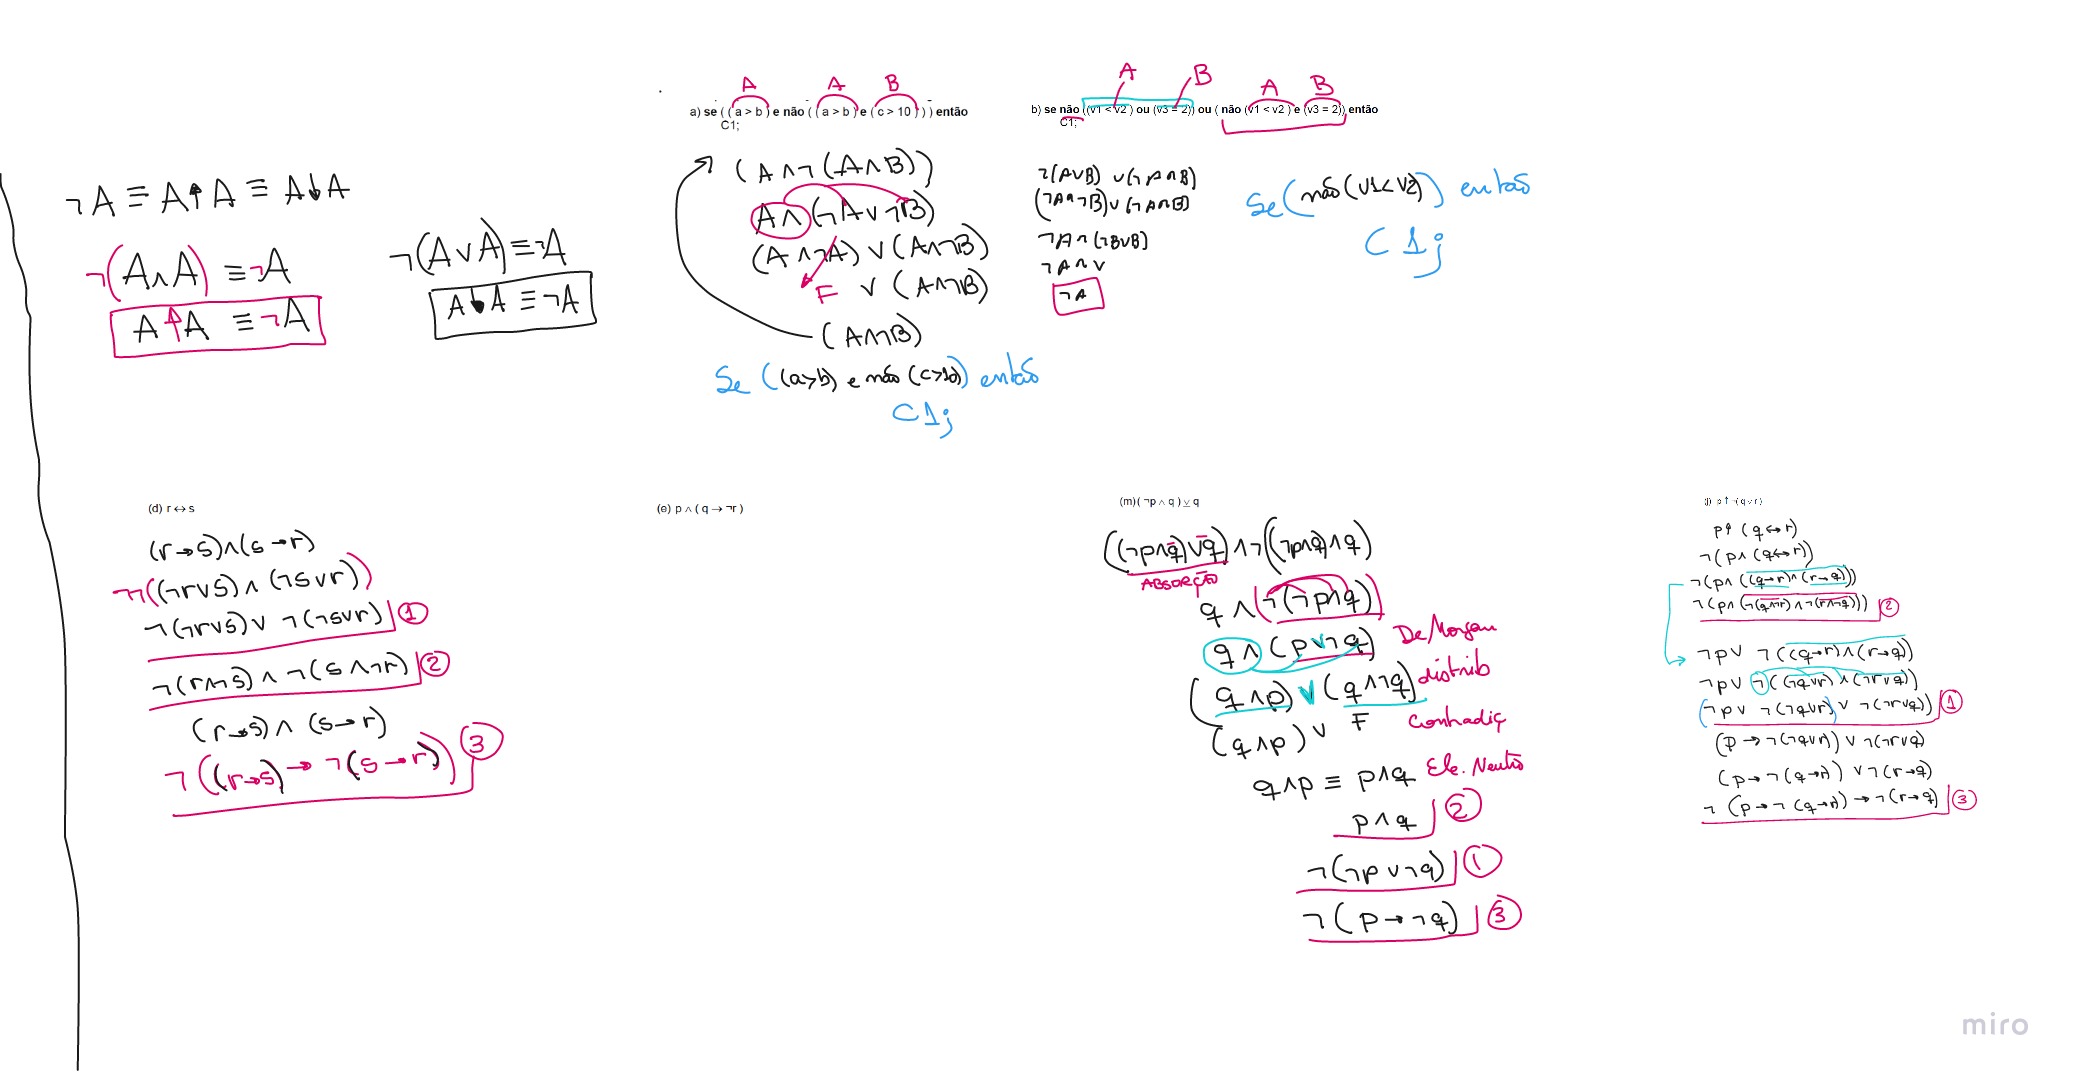 ¬A ≡ A↑A ≡ A↓A
¬(A∧A) ≡ ¬A
A↑A ≡ ¬A
¬(A∨A) ≡ ¬A
A↓A ≡ ¬A
A A B
a) se ( ( a > b ) e não ( ( a > b ) e ( c > 10 ) ) ) então
C1;
(A∧¬(A∧B))
A∧(¬A∨¬B)
(A∧¬A) ∨ (A∧¬B)
F ∨ (A∧¬B)
(A∧¬B)
Se ((a>b) e não (c>10)) então
C1;
A B A B
b) se não ((v1 < v2 ) ou (v3 = 2)) ou ( não (v1 < v2 ) e (v3 = 2)) então
C1;
¬(A∨B) ∨(¬A∧B)
(¬A∧¬B)∨(¬A∧B)
¬A∧(¬B∨B)
¬A∧V
¬A
Se (não (v1<v2)) então
C1;
(d) r ↔ s
(r→s)∧(s→r)
¬¬((¬r∨s)∧(¬s∨r))
¬(¬r∨s)∨ ¬(¬s∨r) 1
¬(r∧¬s)∧¬(s∧¬r) 2
(r→s)∧(s→r)
¬((r→s)→¬(s→r)) 3
(e) p ∧ ( q → ¬r )
(m)( ¬p ∧ q ) ⊻ q
((¬p∧q)∨q)∧¬((¬p∧q)∧q)
ABSORÇÃO
q∧(¬(¬p∧q))
q∧(p∨¬q) De Morgan
distrib
(q∧p)∨(q∧¬q)
(q∧p)∨ F Contradiç
q∧p ≡ p∧q Ele. Neutro
p∧q 2
¬(¬p∨¬q) 1
¬(p→¬q) 3
p↑(q↔r)
¬(p∧(q↔r))
¬(p∧((q→r)∧(r→q)))
¬(p∧(¬(q∧¬r)∧¬(r∧¬q))) 2
¬p∨ ¬((q→r)∧(r→q))
¬p∨ ¬((¬q∨r)∧(¬r∨q))
(¬p∨ ¬(¬q∨r)∨ ¬(¬r∨q)) 1
(p→¬(¬q∨r))∨¬(¬r∨q)
(p→¬(q→r))∨¬(r→q)
¬(p→¬(q→r))→¬(r→q) 3
miro